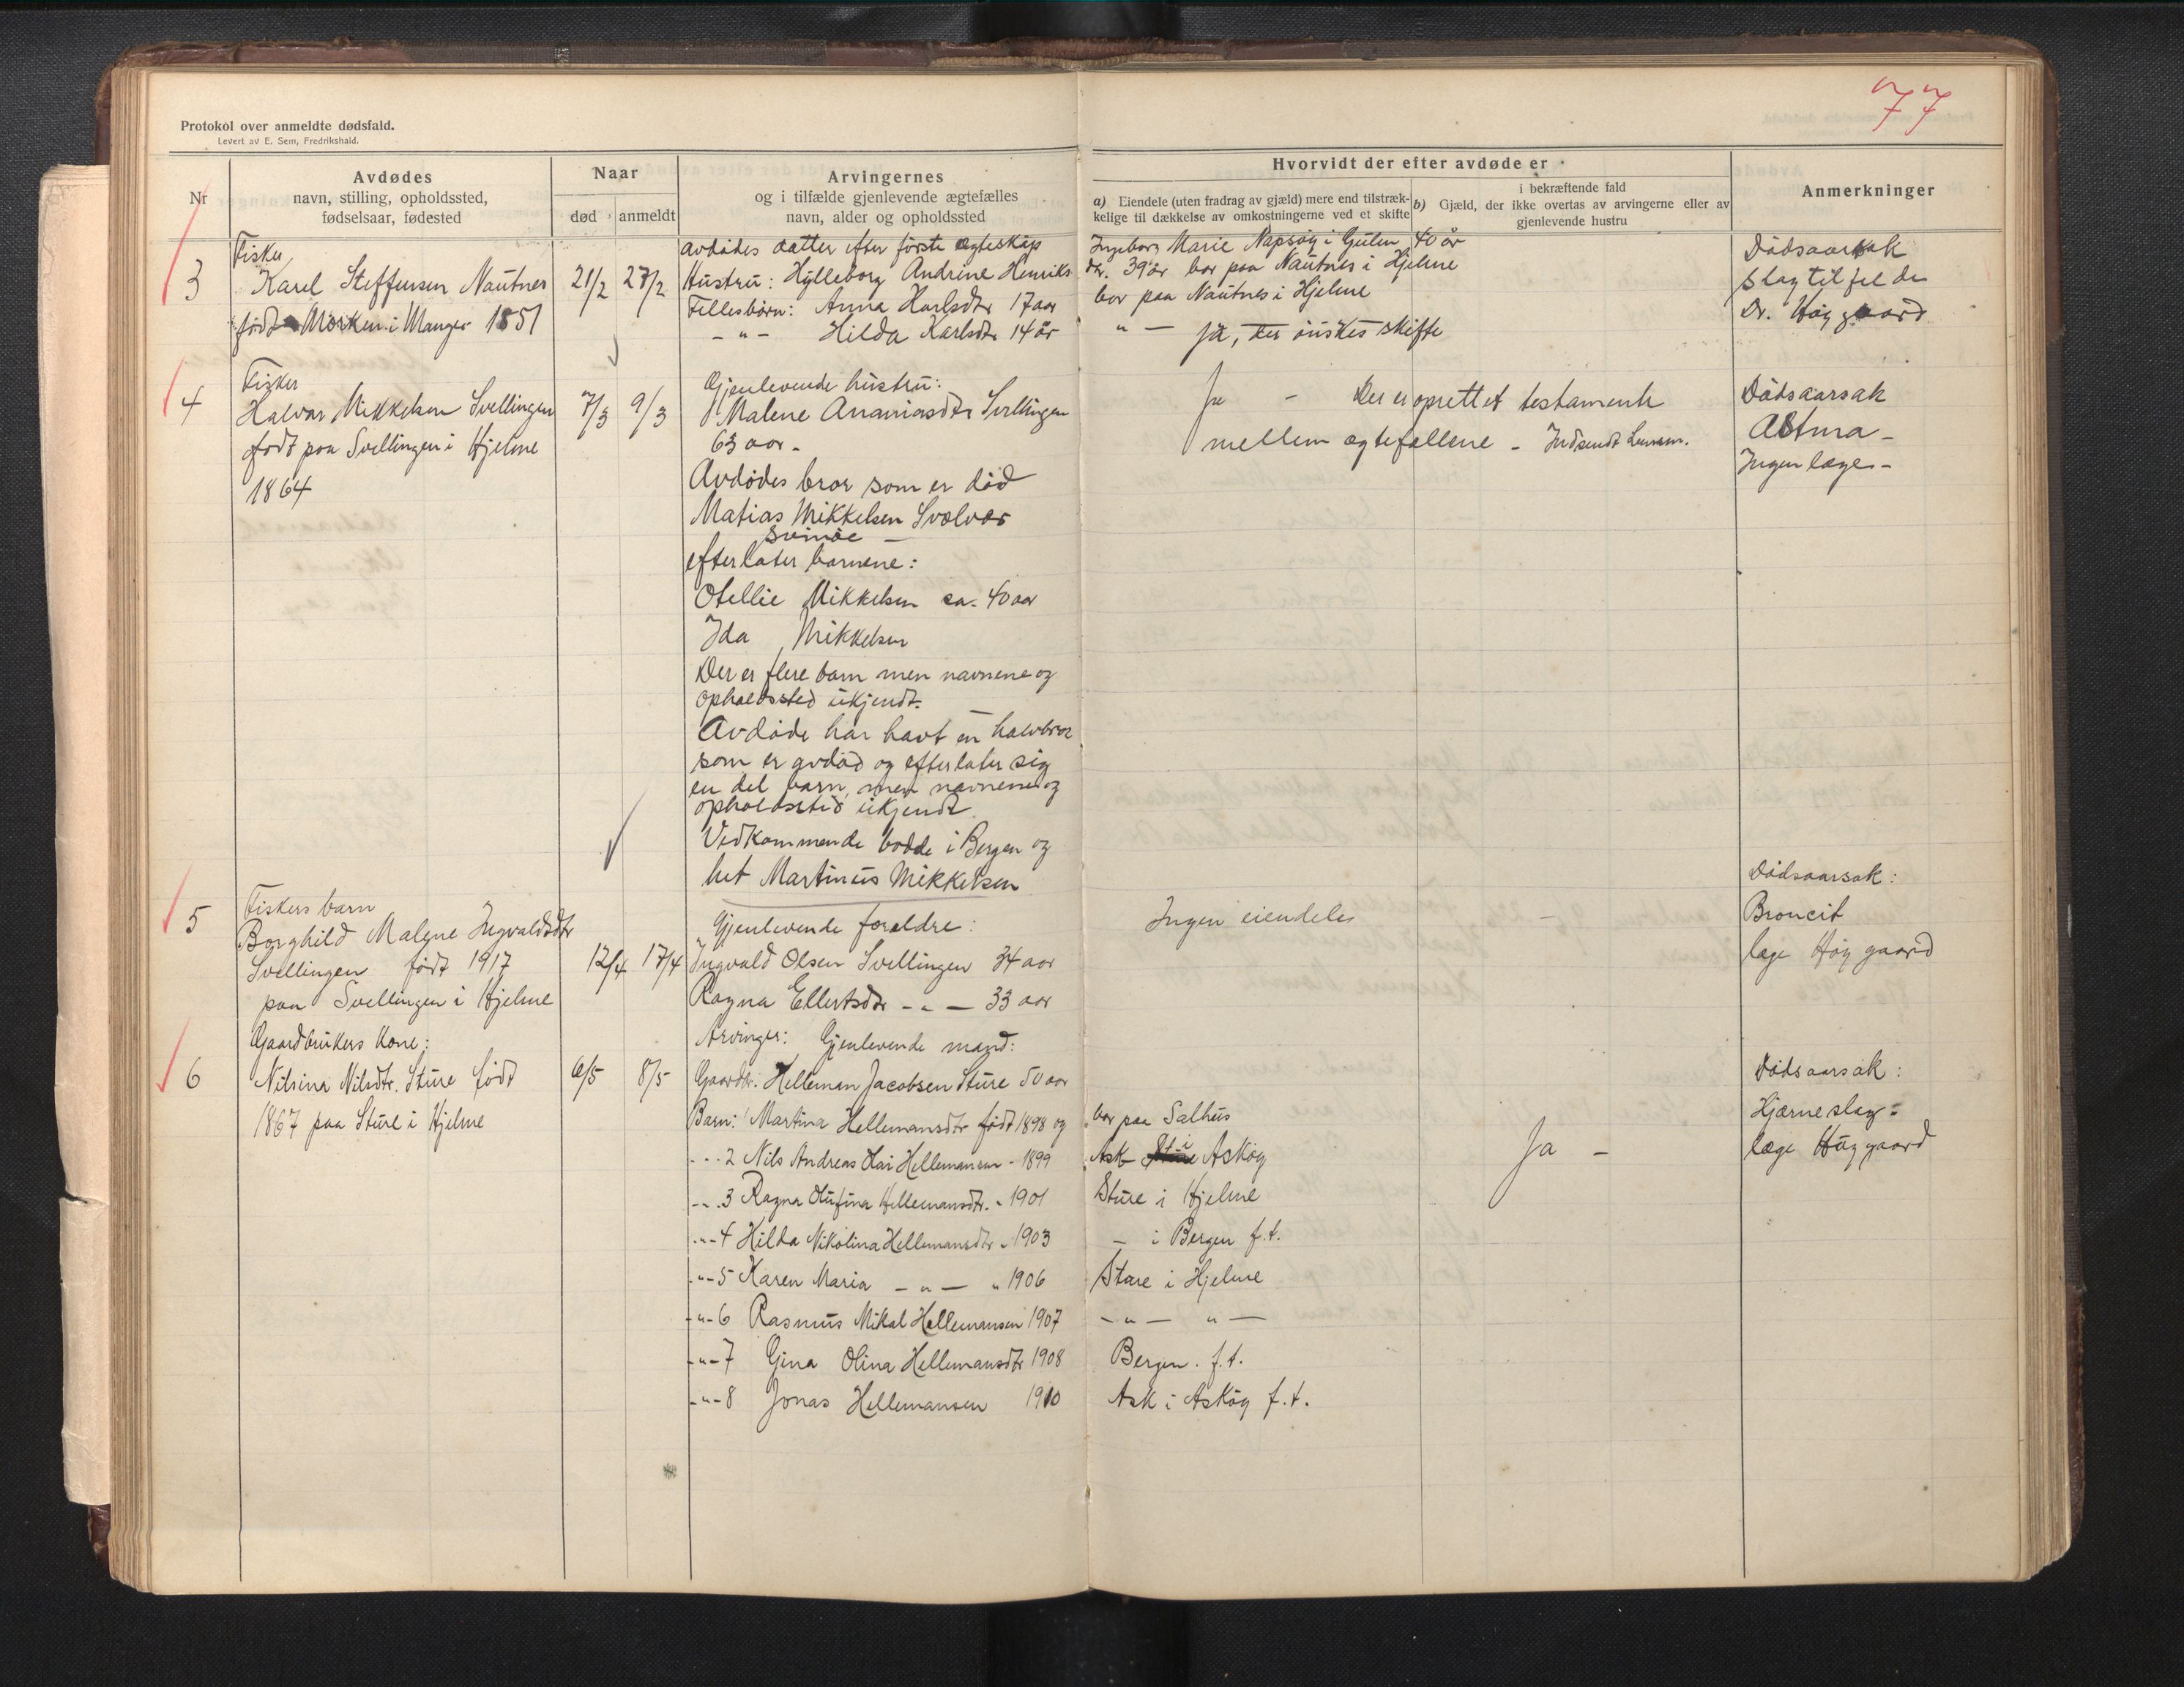 77
Protokol over anmeldte dødsfald.
Levert av E. Sem, Fredrikshald.
Nr
Avdødes
navn, stilling, opholdssted,
fødselsaar, fødested
Naar
død
anmeldt
Arvingernes
og i tilfælde gjenlevende ægtefælles
navn, alder og opholdssted
Hvorvidt der efter avdøde er
a) Eiendele (uten fradrag av gjæld) mere end tilstræk-
kelige til dækkelse av omkostningerne ved et skifte
i bekræftende fald
b) Gjæld, der ikke overtas av arvingerne eller av
gjenlevende hustru
Anmerkninger
3
Fisker
Karel Steffensen Nautnes
født Morken i Manger 1851
21/2 27/2
avdødes datter efter første egteskap Ingeborg Marie Napsøy i Gulen 40 år
Hustru: Hylleborg Andrine Henriks dtr. 39 år bor paa Nautnes i Hjelme
Fellesbørn: Anna Karlsdtr 17 aar bor paa Nautnes i Hjelme
- " - Hilda Karlsdtr 14 år " —
Ja, der ønskes skifte
Dødsaarsak
slagtilfelde
Dr. Høygaard
4
Fisker
Halvor Mikkelsen Svellingen
født paa Svellingen i Hjelme
1864
7/3 9/3
Gjenlevende hustru:
Malene Ananiasdtr Svellingen
63 aar -
Avdødes bror som er død
Matias Mikkelsen Svolvær
Svinøe —
efterlater barnene:
Otellie Mikkelsen ca. 40 aar
Ida Mikkelsen
Der er flere barn men navnene og
opholdssted ukjendt.
Avdøde har havt en halvbror
som er avdød og efterlater sig
en del barn, men navnene og
opholdssted ukjendt.
Vedkommende bodde i Bergen og
het Martinus Mikkelsen
Ja - Der er oprettet testamente
mellem egtefellene - Indsendt Lensm.
Dødsaarsak
Astma -
Ingen læge -
5
Fiskers barn
Borghild Malene Ingvaldsdtr
Svellingen født 1917
paa Svellingen i Hjelme
12/4 17/4
Gjenlevende foreldre:
Ingvald Olsen Svellingen 34 aar
Ragna Ellertsdtr - " — 33 aar
Ingen eiendeler —
Dødsaarsak:
Broncit
læge Høygaard
6
Gaardbrukers kone:
Nilsina Nilsdtr. Sture født
1867 paa Sture i Hjelme
6/5 8/5
Arvinger: Gjenlevende mand:
Gaardbr. Helleman Jacobsen Sture 50 aar
Barn: 1 Martina Hellemansdtr født 1898 og bor paa Salhus
- " - 2 Nils Andreas Hellemansen - 1899 Ask i Askøy
- " - 3 Ragna Olufina Hellemansdtr. " 1901 Sture i Hjelme
- " - 4 Hilda Nikolina Hellemansdtr " 1903 — i Bergen f.t.
- " - 5 Karen Maria - " — " 1906 Sture i Hjelme
- " - 6 Rasmus Mikal Hellemansen 1907 - " — " —
- " - 7 Gina Olina Hellemansdtr 1908 Bergen. f.t.
- " - 8 Jonas Hellemansen 1910 Ask i Askøy f.t.
Ja -
Dødsaarsak:
Hjerneslag -
læge Høygaard